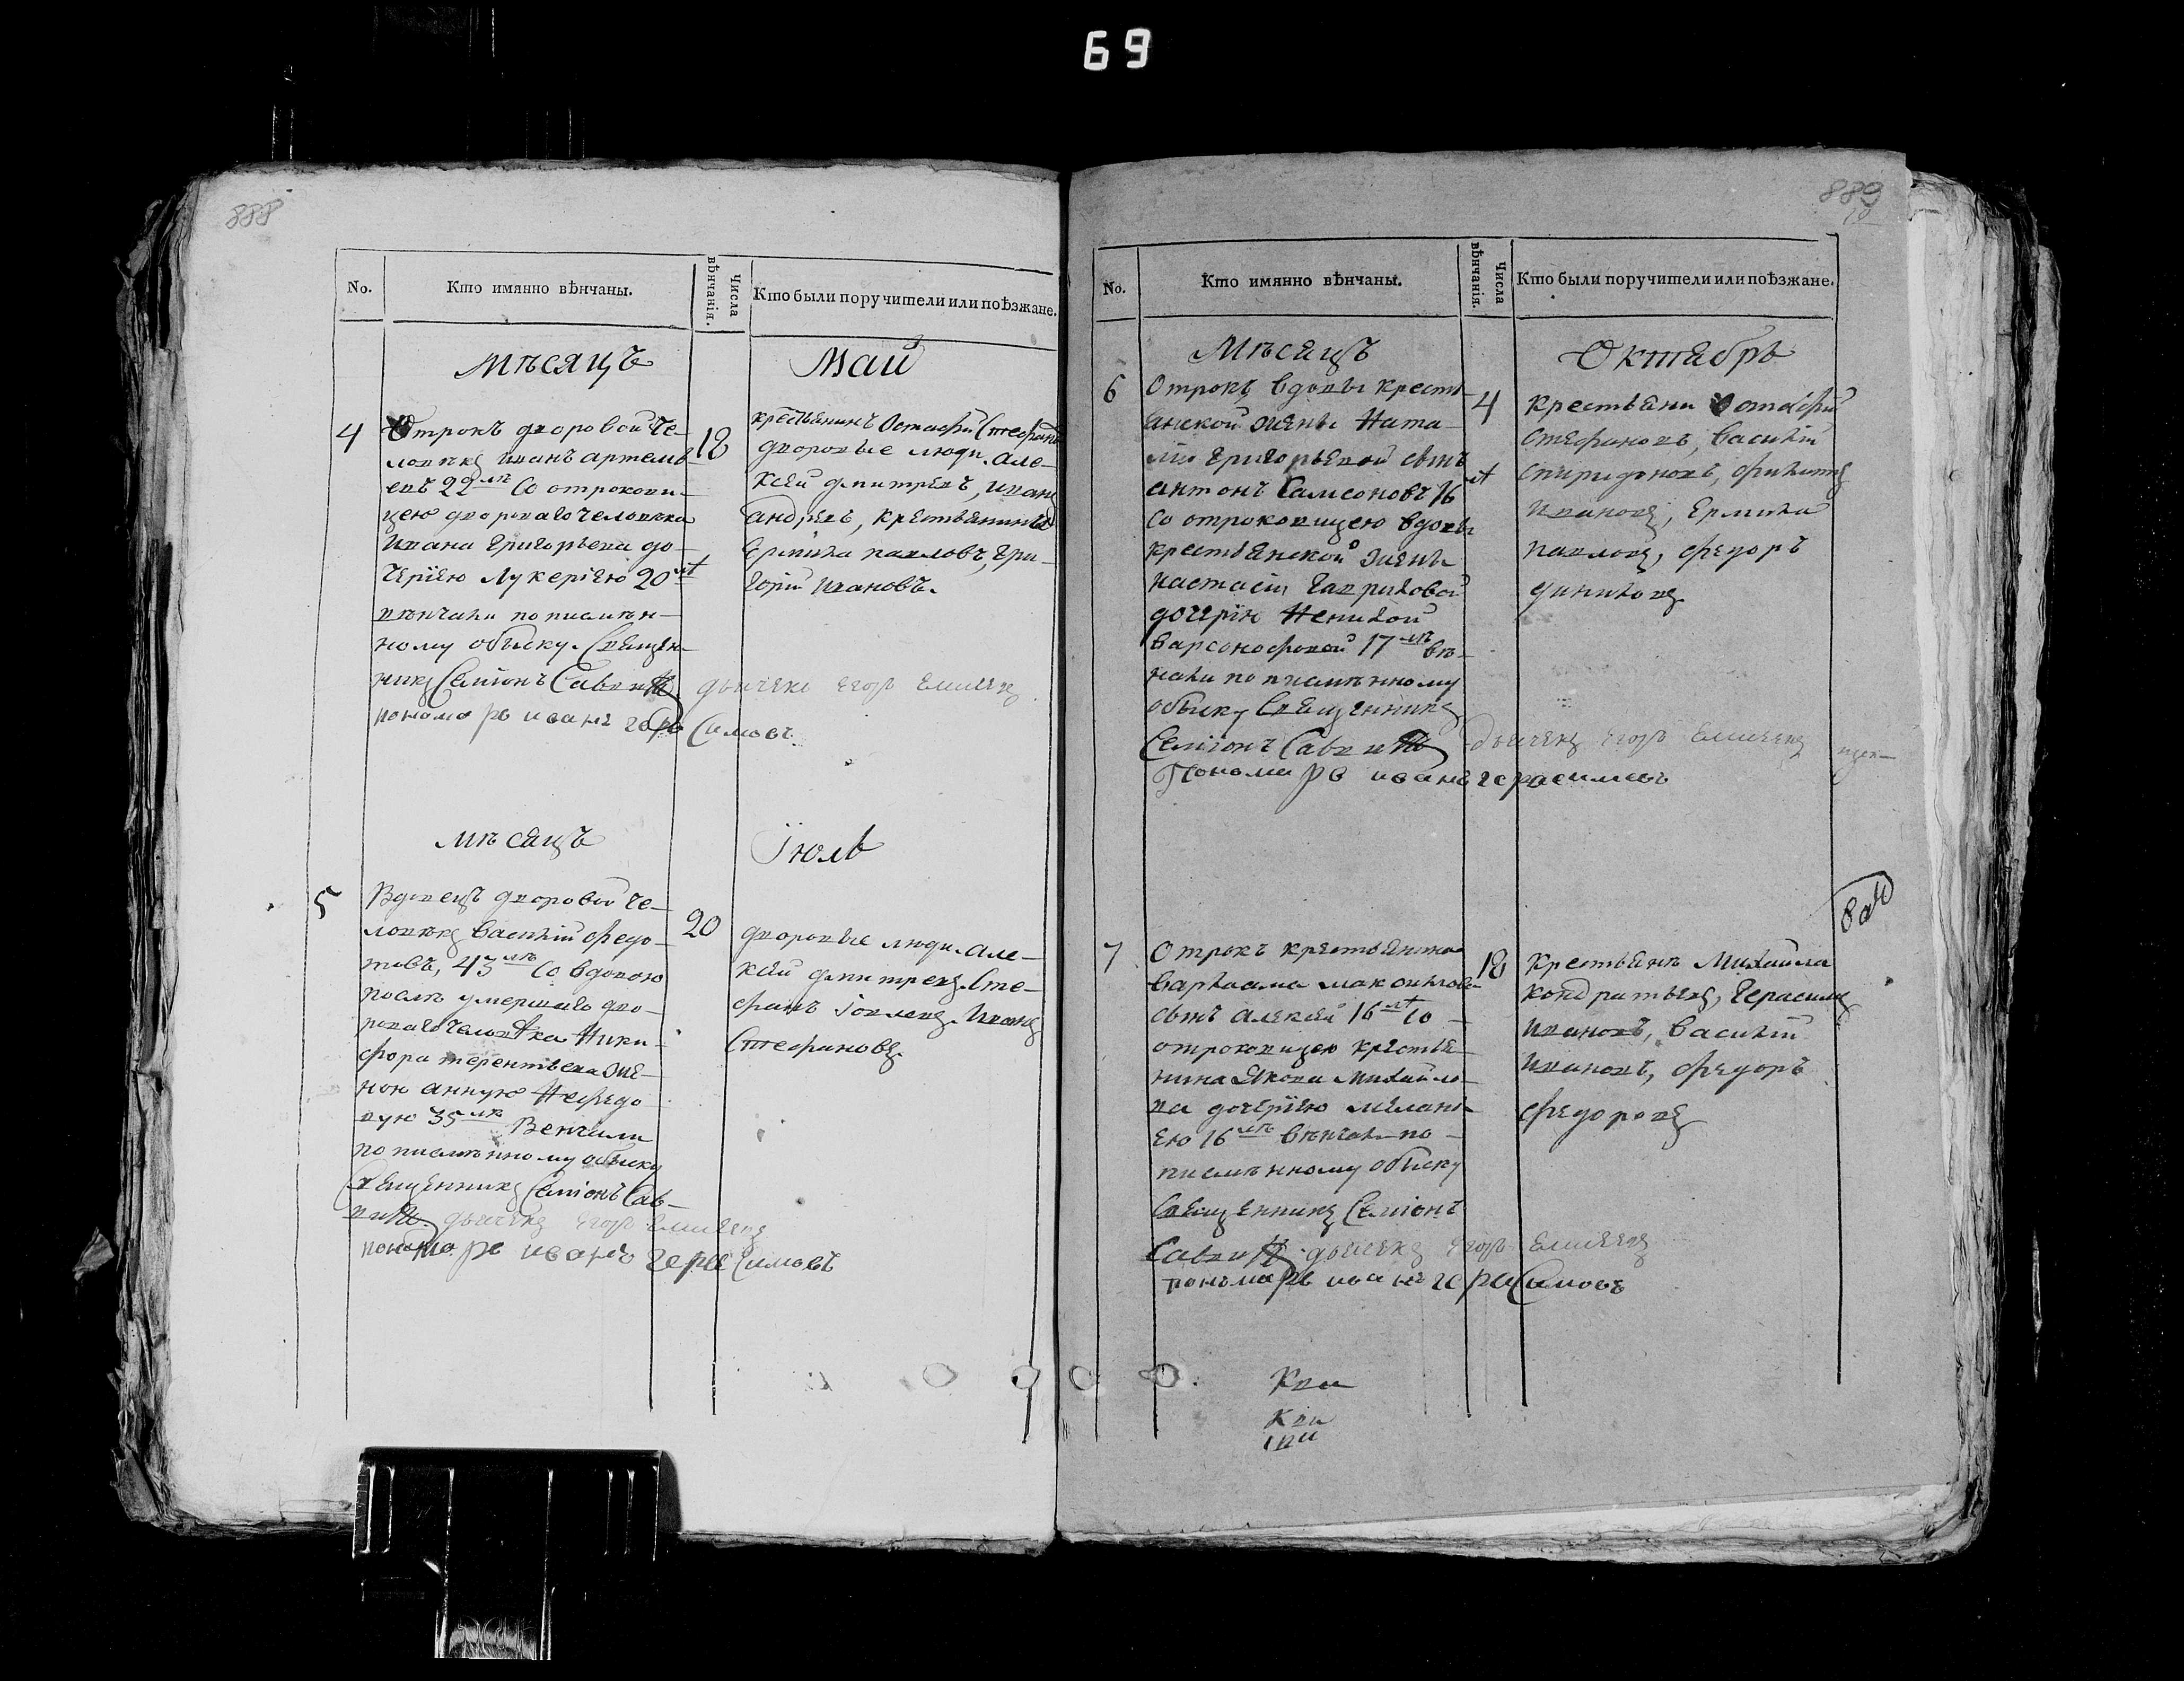 69
888
No.
Кто имянно вѣнчаны.
Числа вѣнчанія.
Кто были поручители или поѣзжане.
Мѣсяцъ
Май
4
Отрокъ дворовой че-
ловѣкъ иванъ артемь-
евъ 22 лѣ со отрокови-
цею двороваго человѣка
ивана григорьева до-
черїею лукерїею 20 лѣт
вѣнчали по писмѣн-
ному обыску. Священ-
никъ Семіонъ Саввин
дьячекъ Егоръ
пономарь иванъ герасимовъ
18
крестьянинъ Остафій Стефано
дворовые люди. Але-
ксей дмитревъ, иванъ
андревъ, крестьянинъ
Ермила павловъ, гри-
горій ивановъ.
Мѣсяцъ
Їюль
5
Вдовецъ дворовой че-
ловѣкъ василій федо-
товъ, 43 лѣ со вдовою
послѣ умершаго дво-
роваго человѣка Ники-
фора терентьева же-
ною анною Нефедо
вую 35 лѣ Венчали
по писмѣнному обыску
Священникъ Семіонъ Сав-
вин дьячекъ Егоръ
пономарь иванъ герасимовъ
20
дворовые люди. Але-
ксей дмитревъ. Сте-
фанъ Іовлевъ. Иванъ
Стефановъ.
889
No.
Кто имянно вѣнчаны.
Числа вѣнчанія.
Кто были поручители или поѣзжане.
Мѣсяцъ
Октябрь
6
Отрокъ вдовы кресть-
янской жены Ната-
ліи григорьевой сынъ
антонъ Самсоновъ 16 лѣт
со отроковицею вдовы
крестьянской жены
настасіи гавриловой
дочерїю Ненилой
варсонофовой 17 лѣ вѣ-
нчали по писмѣнному
обыску Священникъ
Семіонъ Саввин дьячекъ Егоръ
Пономарь иванъ герасимовъ
4
крестьяни Остафій
Стефановъ, василій
спиридоновъ, филипъ
ивановъ, Ермила
павловъ, федоръ
даниловъ
7
Отрокъ крестьянина
варлаама
сынъ алексей 16 лѣт со
отроковицею крестья-
нина Якова Михайло-
ва дочерїею мелань-
ею 16 лѣ вѣнчали по
писмѣнному обыску
Священникъ Семіонъ
Саввин дьячекъ Егоръ
пономарь иванъ герасимовъ
18
крестьянъ Михайла
кондратьевъ, герасимъ
ивановъ, василій
ивановъ, федоръ
федоровъ